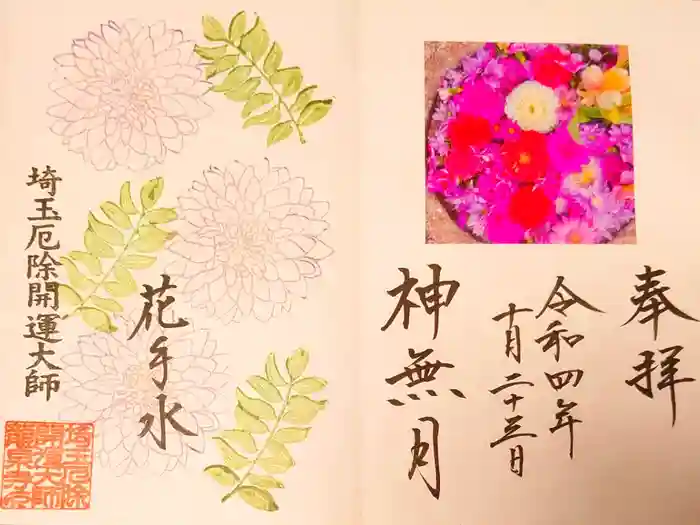 奉拝
令和四年
十月二十三日
神無月
花手水
埼玉厄除開運大師
埼玉厄除
開運大師
龍泉寺印